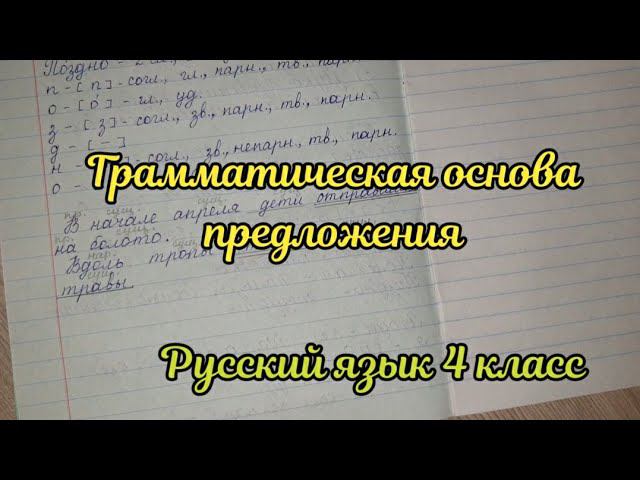 Поздно -
п - [п] - согл., гл., парн., тв., парн.
о - [о́] - гл., уд.
з - [з] - согл., зв., парн., тв., парн.
д - [-]
н - согл., зв., непарн., тв., парн.
о -
Грамматическая основа
предложения
пр. сущ.
В начале апреля дети
пр. сущ.
на болото.
нар. сущ.
Вдоль тропы
сущ.
травы
Русский язык 4 класс